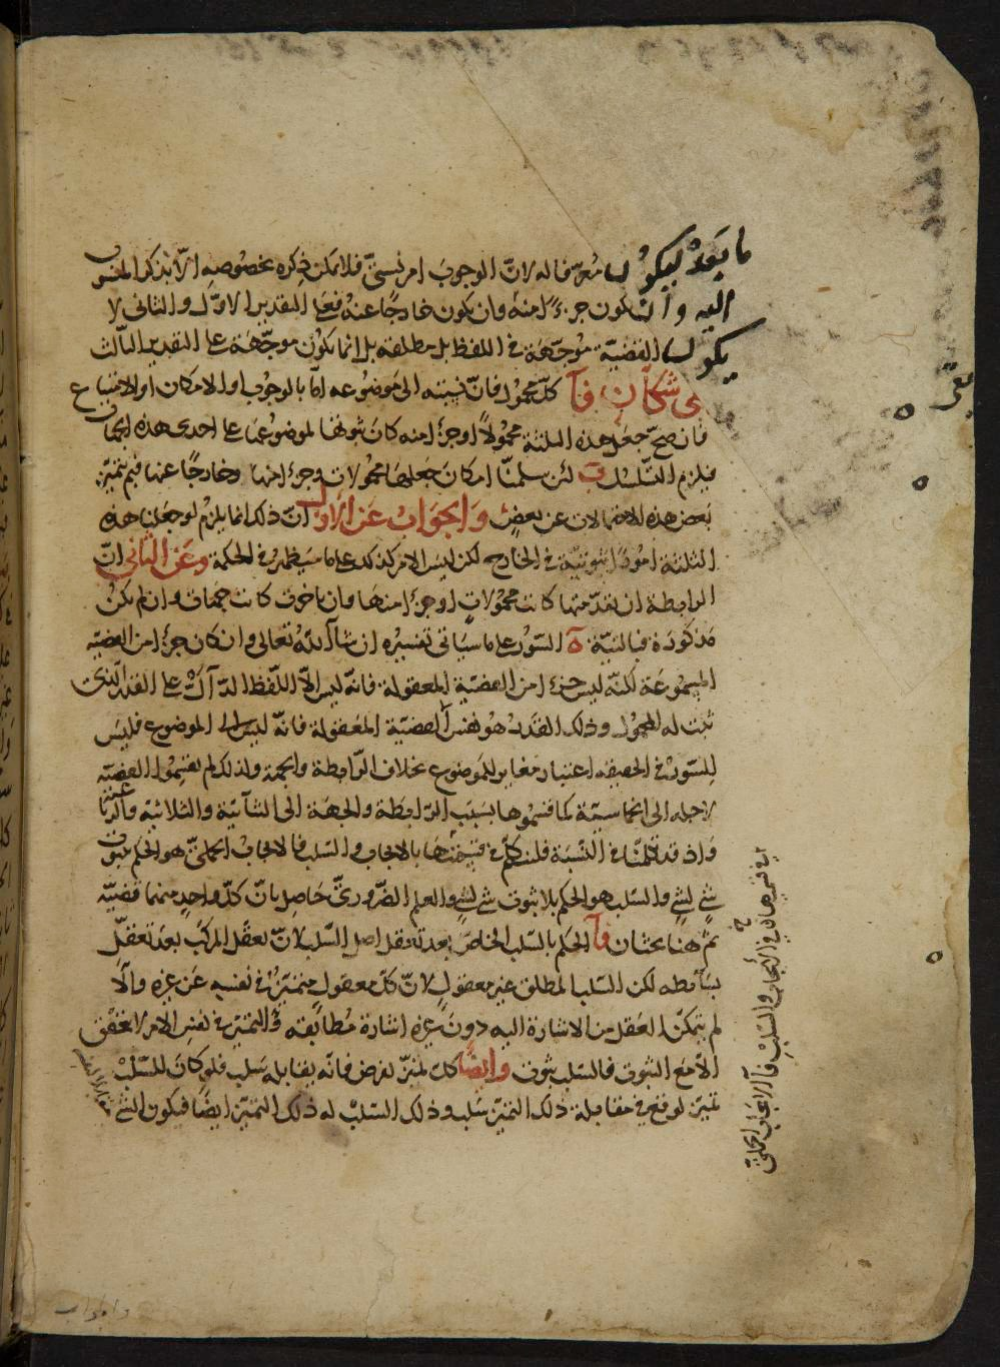 ما بعد ليكون معرفا له لان الوجوب امر نسبي فلا يمكن ذكره بخصوصه الا بذكر المنسوب
اليه وان يكون جزءا منه وان يكون خارجا عنه فعلى التقدير الاول والثانى لا
يكون القضية موجهة فى اللفظ بل مطلقة بل انما يكون موجهة على التقدير الثالث
شكان فآ كل محمول فان نسبته الى موضوعه اما بالوجوب او الامكان او الامتناع
فان صح جعل هذه الثلثة محمولا او جزءا منه كان ثبوتها لموضوعها على احدى هذه الجهات
فيلزم التسلسل ب لئن سلمنا امكان جعلها محمولات وجزءا منها وخارجا عنها فبم يتميز
بعض هذه الاحتمالات عن بعض والجواب عن الاول ان ذلك انما يلزم لو جعلنا هذه
الثلثة امورا ثبوتية فى الخارج لكن ليس الامر كذلك على ما سيظهر فى الحكمة وعن الثانى ان
الرابطة ان تقدمتها كانت محمولات او جزءا منها وان تاخرت كانت جهات وان لم يكن
مذكورة فبالنية ة السور على ما سياتى تفسيره ان شاء الله تعالى وان كان جزءا من القضية
المسموعة لكنه ليس جزءا من القضية المعقولة فانه ليس الا اللفظ الدال على القدر الذى
ثبت له المحمول وذلك القدر هو نفس القضية المعقولة فانه ليس الا الموضوع فليس
للسور فى الحقيقة اعتبار مغاير للموضوع بخلاف الرابطة والجهة ولذلك لم يقسموا القضية
لاجله الى الخماسية كما قسموها بسبب الرابطة والجهة الى الثنائية والثلاثية والرباعية
واذ قد تكلمنا فى النسبة فلنتكلم فى قسمتها بالايجاب والسلب فالايجاب الحملى هو الحكم بثبوت
شئ لشئ والسلب هو الحكم بلا ثبوت شئ لشئ والعلم الضرورى حاصل بان كل واحد منهما قضية
ثم هنا بحثان فآ الحكم بالسلب الخاص بعد تعقل اصل السلب لان تعقل المركب بعد تعقل
بسائطه لكن السلب المطلق غير معقول لان كل معقول متميز فى نفسه عن غيره والا
لم يتمكن العقل من الاشارة اليه دون غيره اشارة مطابقة والتميز فى نفس الامر لا يتحقق
الا مع الثبوت فالسلب ثبوت وايضا كل تميز يفرض فانه يقابله سلب فلو كان للسلب
تميز لوقع فى مقابلة ذلك التميز سلب وذلك السلب له ذلك التميز ايضا فيكون الشئ
فى الايجاب والسلب فآ الايجاب الحملى